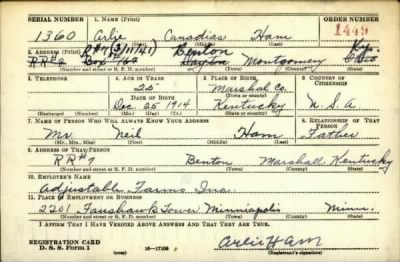 SERIAL NUMBER 1. NAME (Print) ORDER NUMBER
1360 Arlie Canadias Ham 1449
(First) (Middle) (Last)
R#7 (3/11/41) Benton Ky.
2. ADDRESS (Print)
RR#2 Box 760 Dayton Montgomery Ohio
(Number and street or R. F. D. number) (Town) (County) (State)
3. TELEPHONE 4. AGE IN YEARS 5. PLACE OF BIRTH 6. COUNTRY OF CITIZENSHIP
25 Marshal Co.
DATE OF BIRTH (Town or county)
Dec. 25 1914 Kentucky U.S.A
(Exchange) (Number) (Mo.) (Day) (Yr.) (State or country)
7. NAME OF PERSON WHO WILL ALWAYS KNOW YOUR ADDRESS 8. RELATIONSHIP OF THAT PERSON
Mr. Neil Ham Father
(Mr., Mrs., Miss) (First) (Middle) (Last)
9. ADDRESS OF THAT PERSON
RR#7 Benton Marshall Kentucky
(Number and street or R. F. D. number) (Town) (County) (State)
10. EMPLOYER'S NAME
Adjustable Forms Inc.
11. PLACE OF EMPLOYMENT OR BUSINESS
2201 Tower Minniapolis Minn.
(Number and street or R. F. D. number) (Town) (County) (State)
I AFFIRM THAT I HAVE VERIFIED ABOVE ANSWERS AND THAT THEY ARE TRUE.
REGISTRATION CARD Arlie Ham
D. S. S. Form 1 (over) 16—17105 (Registrant's signature)